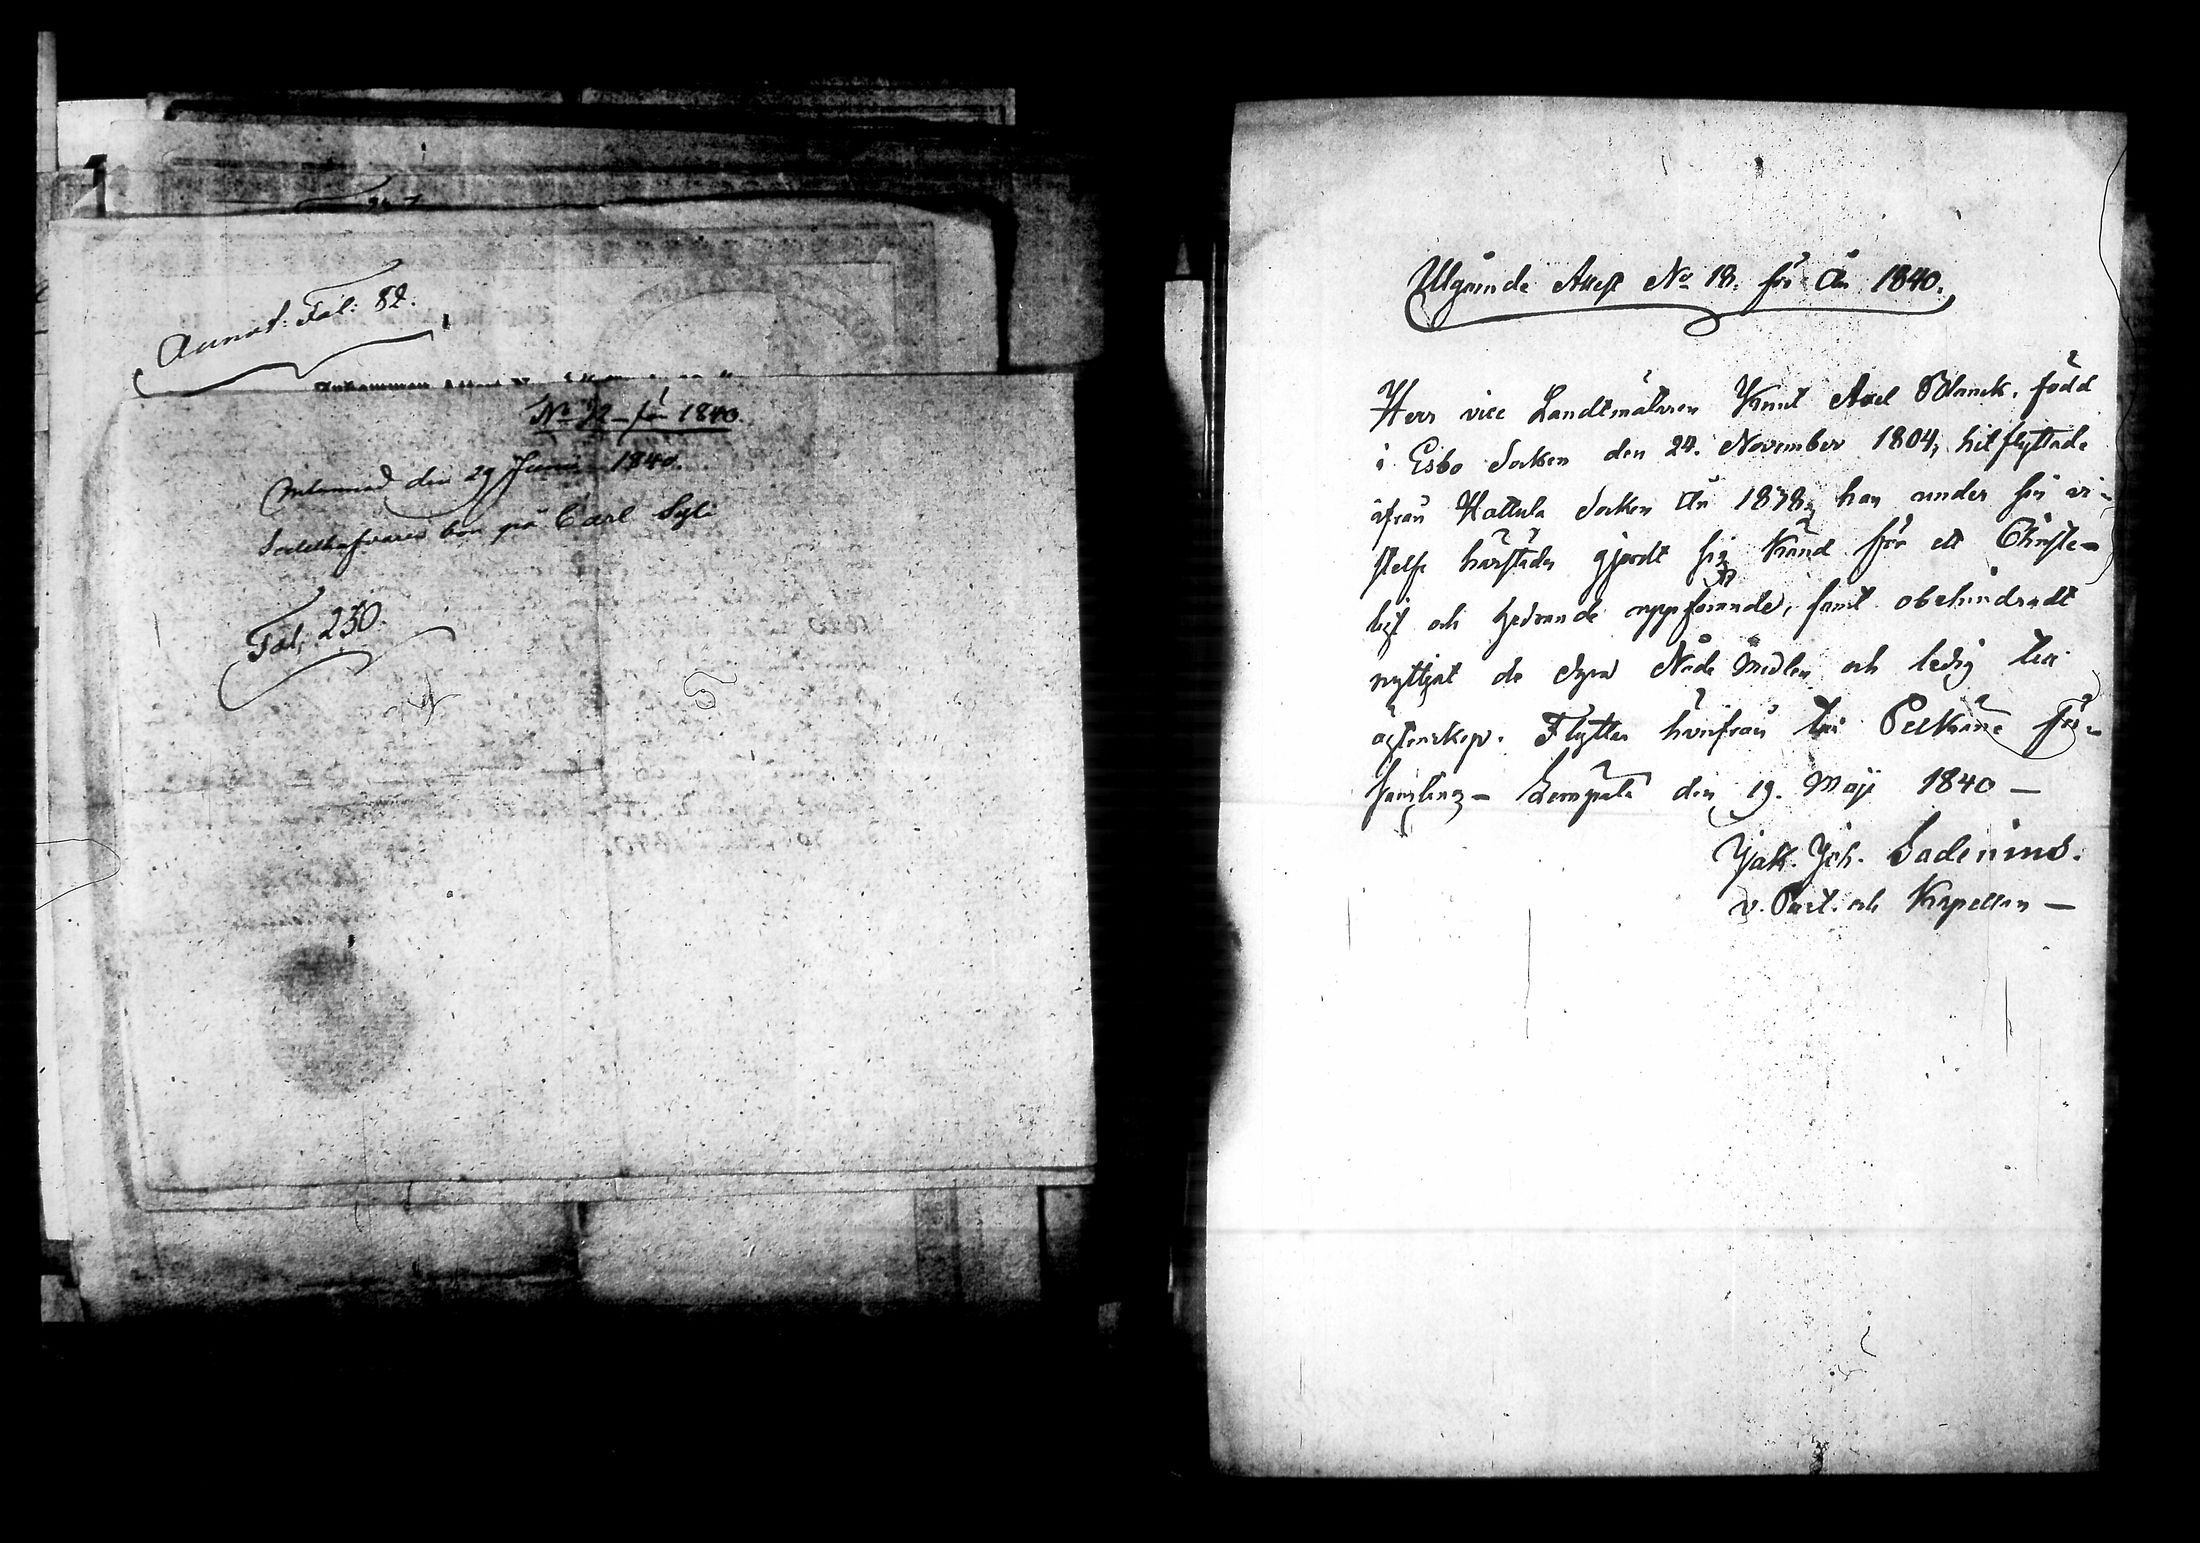 Annot: Fol: 82.
No 72 – för 1840.
den 29 Junii 1840.
Sedelhafvaren bor på Carl Syli
Fol; 230.
Utgående Attest No 18. för År 1840.
Herr vice Landtmätaren Knut Axel Blanck, född
i Esbo Socken den 24. November 1804, hitflyttade
ifrån Hattula Socken År 1838, har under sin vi-
stelse härstädes gjordt sig känd för ett Christe-
ligt och hedrande uppförande, samt obehindradt
nyttjat de dyra Nåde Medlen och ledig till
ägtenskap. Flyttar härifrån till Pelkäne För-
samling – Lempälä den 19. Maji 1840 –
Jak. Joh. Sadenius.
v. Past. och Kapellan –